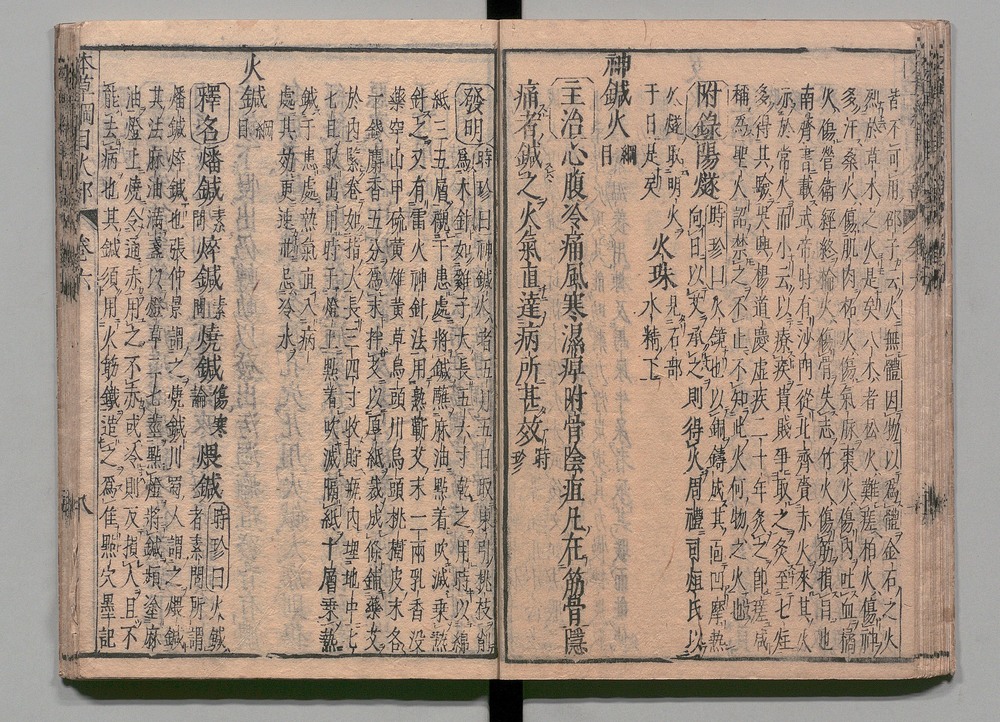 皆不可用邵子云火無體因物以爲體金石之火
烈於草木之火是矣八木者松火難瘥柏火傷神
多汗桑火傷肌肉柘火傷氣脉棗火傷内吐血橘
火傷營衛經絡榆火傷骨失志竹火傷筋損目也
南齊書載武帝時有沙門從北齊賫赤火來其火
赤於常火而小云以療疾貴賤爭取之灸至七炷
多得其驗吳興楊道慶虛疾二十年灸之即瘥咸
稱爲聖火詔禁之不止不知此火何物之火也
附錄陽燧時珍曰火鏡也以銅鑄成其面凹摩熱
向日以艾承之則得火周禮司烜氏以
火燧取明火
于日是矣
火珠見石部
水精下
神鍼火綱目
主治心腹冷痛風寒濕痺附骨陰疽凡在筋骨隱
痛者鍼之火氣直達病所甚效時珍
發明時珍曰神鍼火者五月五日取東引桃枝削
爲木針如雞子大長五六寸乾之用時以綿
紙三五層襯于患處將鍼蘸麻油點着吹滅乘熱
針之又有雷火神針法用熟蘄艾末一兩乳香没
藥穿山甲硫黄雄黄草烏頭川烏頭桃樹皮末各
一錢麝香五分爲末拌艾以厚紙裁成條鋪藥艾
於内緊卷如指大長三四寸收貯瓶内埋地中七
七日取出用時于燈上點着吹滅隔紙十層乘熱
鍼于患處熱氣直入病
處其効更速並忌冷水
火鍼綱目
釋名燔鍼素問焠鍼素問燒鍼傷寒論煨鍼時珍曰火鍼
者素問所謂
燔鍼焠鍼也張仲景謂之燒鍼川蜀人謂之煨鍼
其法麻油滿盞以燈草二十七莖點燈將鍼頻塗麻
油燈上燒令通赤用之不赤或冷則反損人且不
能去病也其鍼須用火筋鐵造之爲佳點穴墨記
本草綱目火部
卷六
八